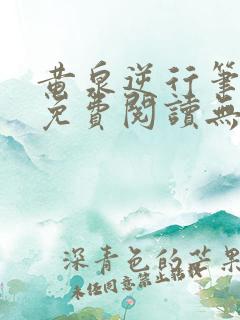 黄泉逆行筆
免費閱讀無
深青色的芒果
未任同意禁止转载